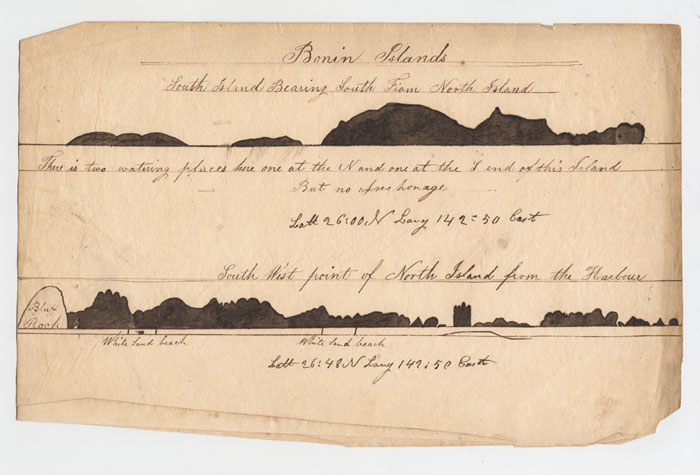 Bonin Islands
South Island Bearing South From North Island
There is two watering places here one at the N and one at the S end of this Island
But no Anchorage
Latt 26:00 N Long 142=50 East
South West point of North Island from the Harbour
Rock
White Sand beach White Sand beach
Latt 26:48 N Long 142:50 East